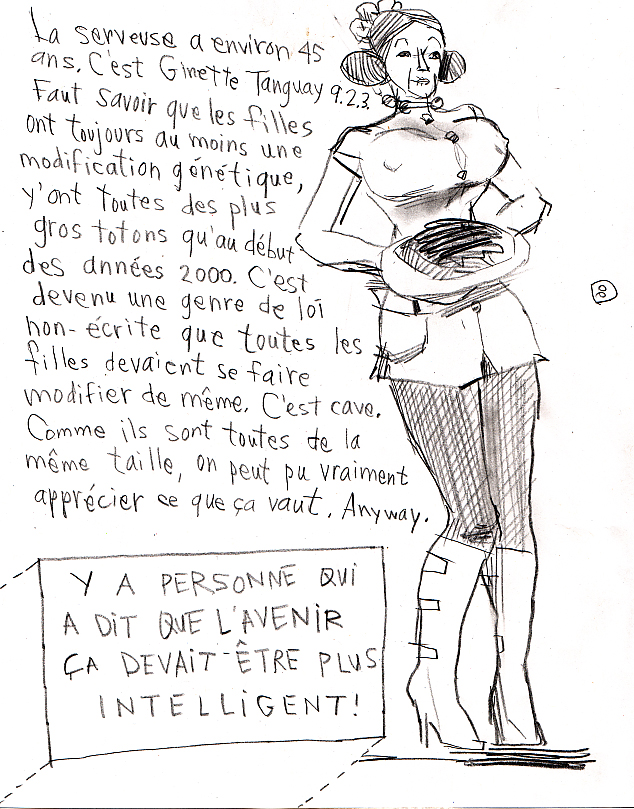 La serveuse a environ 45
ans. C'est Ginette Tanguay 9.2.3.
Faut savoir que les filles
ont toujours au moins une
modification génétique,
y'ont toutes des plus
gros totons qu'au début
des années 2000. C'est
devenu une genre de loi
non-écrite que toutes les
filles devaient se faire
modifier de même. C'est cave.
Comme ils sont toutes de la
même taille, on peut pu vraiment
apprécier ce que ça vaut. Anyway.
Y A PERSONNE QUI
A DIT QUE L'AVENIR
ÇA DEVAIT ÊTRE PLUS
INTELLIGENT!